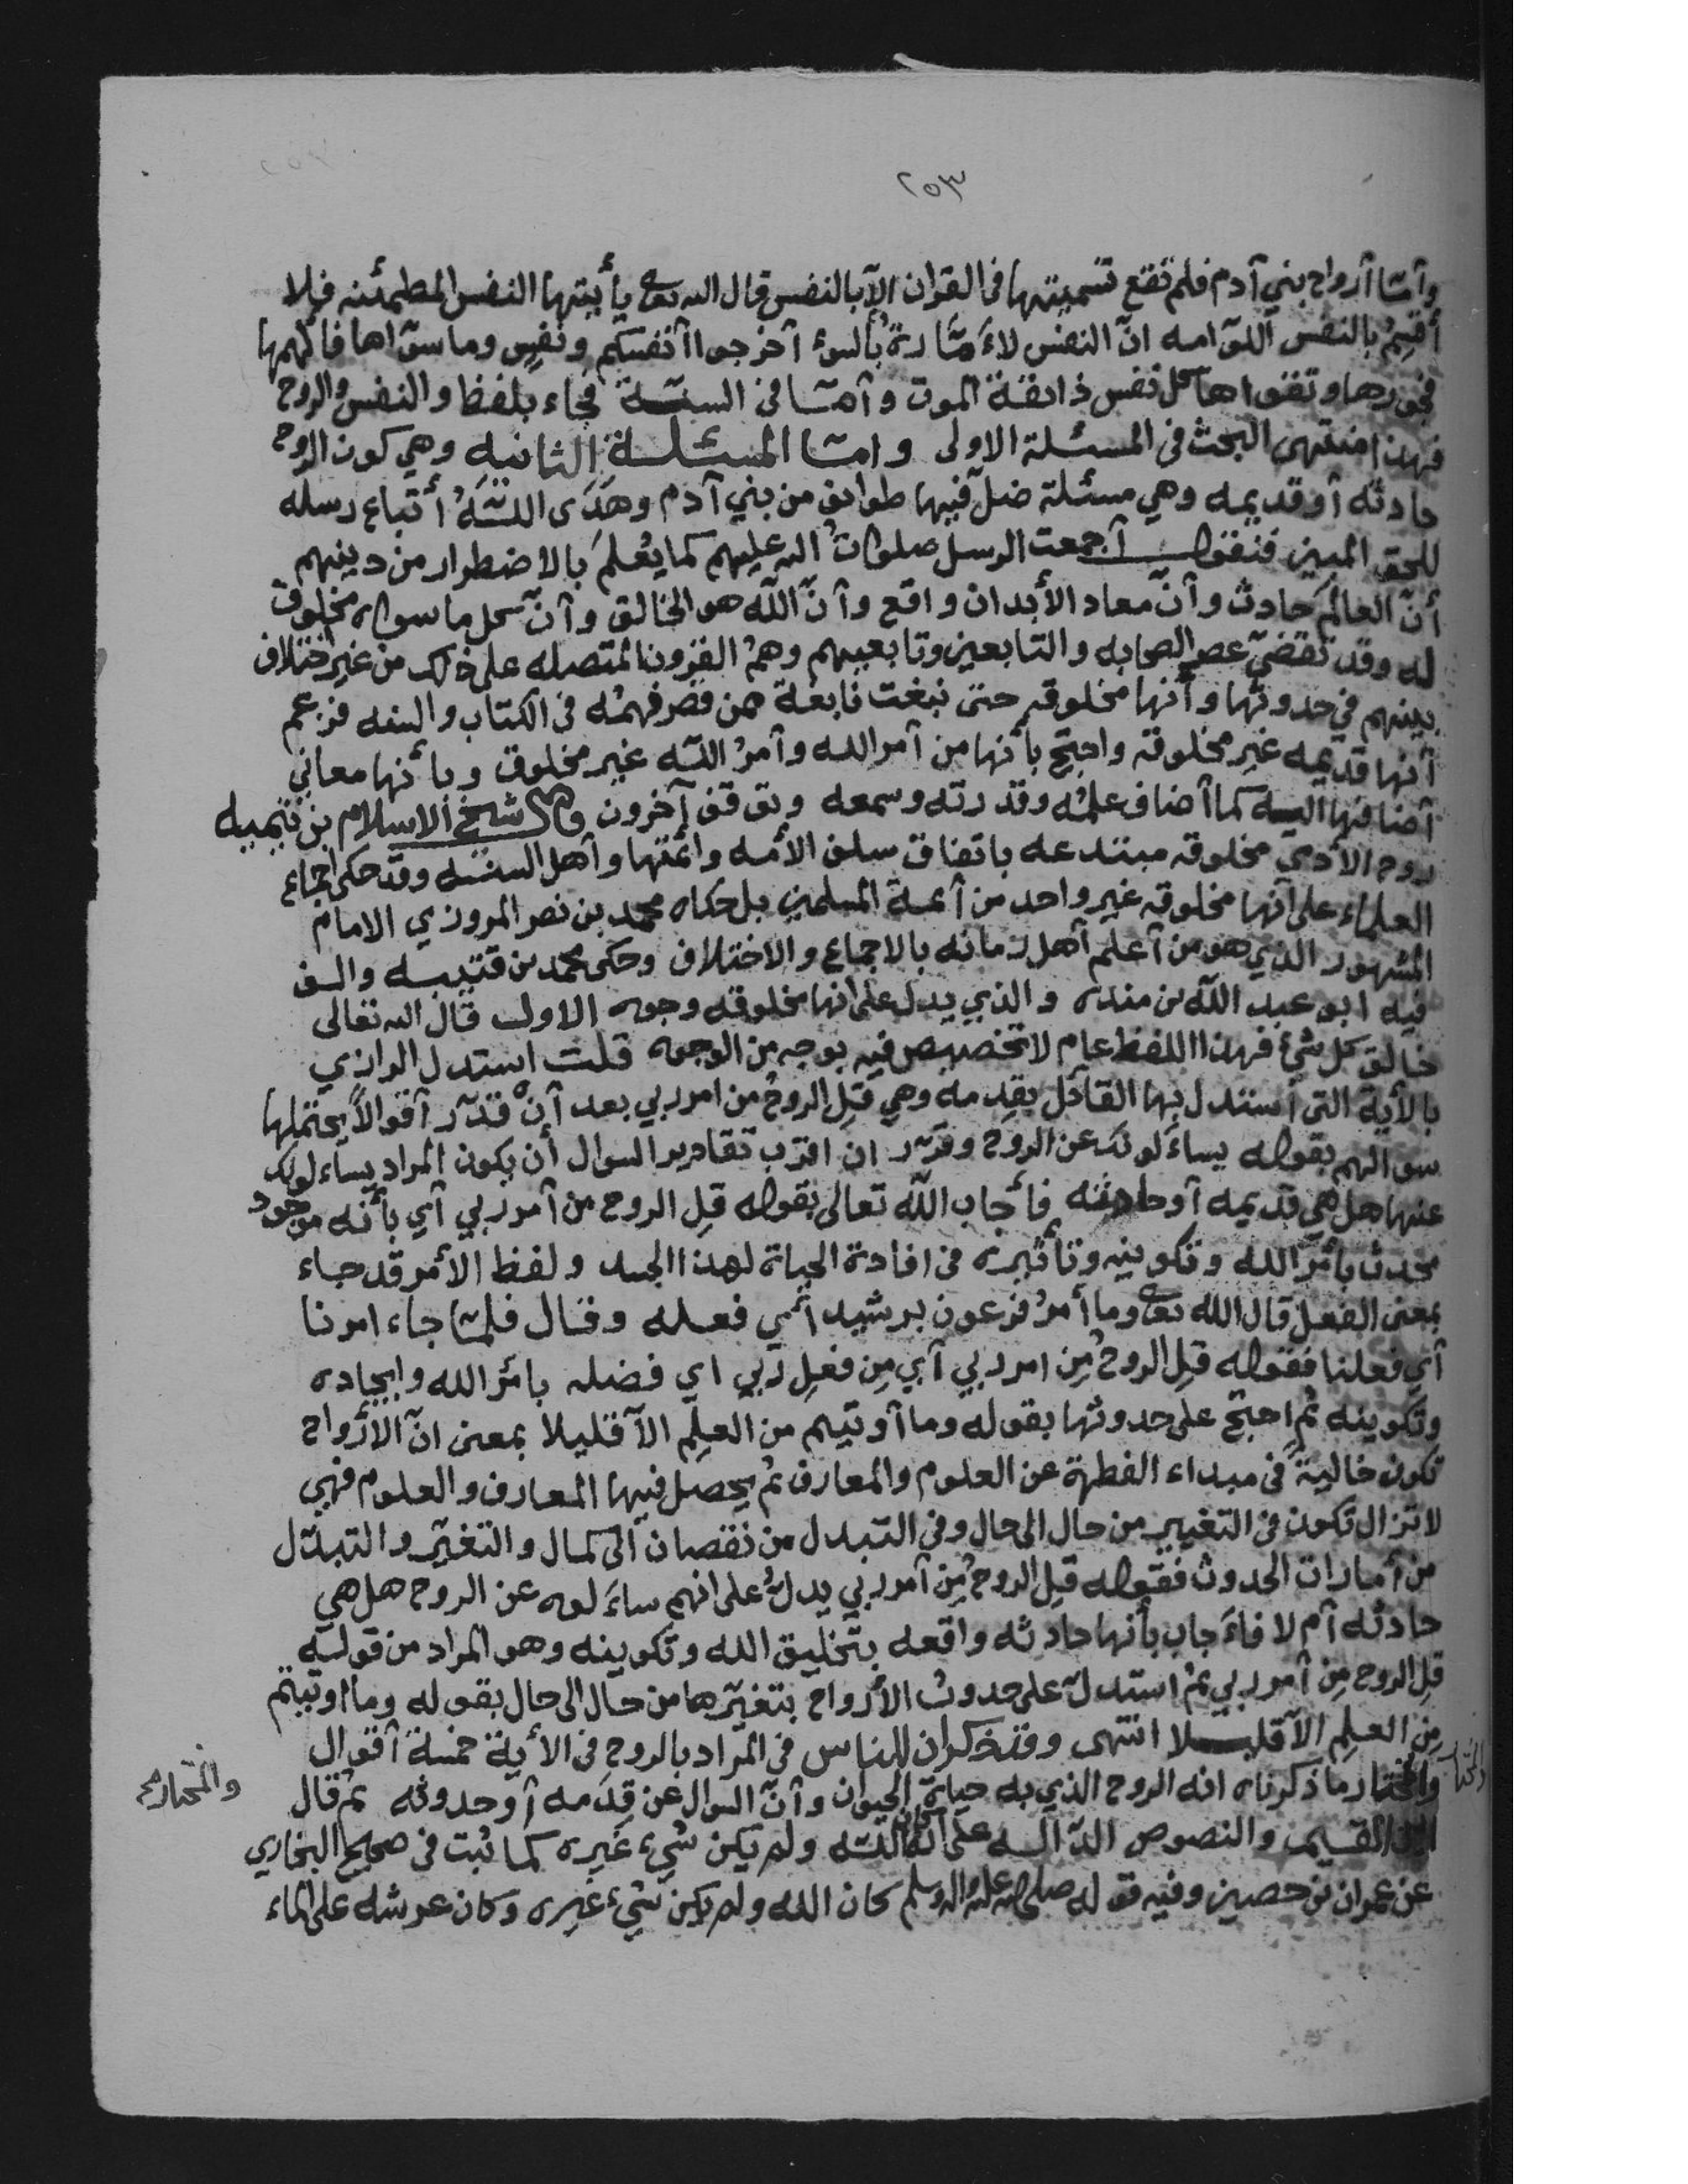 ٢٥٣
وأمّا أرواح بني آدم فلم تقع تسميتها في القران الآ بالنفس قال الله تعالى يأيتها النفس المطمئنه فلا
أقسم بالنفس اللوّامه انّ النفس لأمّارة بالسوء أخرجوا أنفسكم ونفسٍ وما سوّاها فألهمها
فجورها وتقواها كل نفس ذائقة الموت وأمّا في السنّة فجاء بلفظ والنفس والروح
فهذا منتهى البحث في المسئلة الاولى وامّا المسئلة الثانيه وهي كون الروح
حادثه أو قديمه وهي مسئلة ضل فيها طوائف من بني آدم وهَدَى اللّهُ أتباع رسله
للحق المبين فنقول أجمعت الرسل صلوات الله عليهم كما يُعلمَ بالاضطرار من دينهم
أنّ العالمَ حادث وأنّ معاد الأبدان واقع وأنّ اللّه هو الخالق وأنّ كل ما سواه مخلوق
له وقد تقضّى عصر الصحابه والتابعين وتابعيهم وهمُ القرون المتصله على ذلك من غير اختلاف
بينهم في حدوثها وأنها مخلوقه حتى نبغت نابغة ممن قصر فهمُه في الكتاب والسنه فزعم
أنها قديمه غير مخلوقه واحتج بأنها من أمر الله وأمرُ اللّه غير مخلوق وبأنها معاني
أضافها اليه كما أضاف علمُه وقدرته وسمعه وتوقف آخرون قال شيخ الاسلام بن تيميه
روح الآدمي مخلوقه مبتدعه باتفاق سلف الأمه وائمتها وأهل السنه وقد حكى اجماع
العلماء على أنها مخلوقه غير واحد من أئمة المسلمين بل حكاه محمد بن نصر المروزي الامام
المشهور الذي هو من أعلم أهل زمانه بالاجماع والاختلاف وحكى محمد بن قتيبه والف
فيه ابو عبد اللّه بن منده والذي يدل على أنها مخلوقه وجوه الاول قال الله تعالى
خالق كل شئ فهذا اللفظ عام لا تخصيص فيه بوجه من الوجوه قلت استدل الرازي
بالأية التى استدل بها القائل بقدمه وهي قل الروحُ من امر ربي بعد أنْ قدّر أقوالاً يحتملها
سوالهم بقوله يساءَلونك عن الروح وقرّر ان اقرب تقادير السوال أن يكون المراد يساءلونك
عنها هل هي قديمه أو حادثه فأجاب اللّه تعالى بقوله قل الروح من أمر ربي أي بأنه موجود
محدث بأمر الله وتكوينه وتأثيره في افادة الحياة لهذا الجسد ولفظ الأمر قد جاء
بمعنى الفعل قال الله تعالى وما أمرُ فرعون برشيد أي فعله وقال فلمّا جاء امرنا
أي فعلنا فقوله قل الروحُ مِن امر ربي أي مِن فعلِ ربي اي فضله بأمر الله وايجاده
وتكوينه ثم احتج على حدوثها بقوله وما أوتيتم من العلِم الآ قليلا بمعنى انّ الأرْواح
تكون خاليةً في مبداء الفطرة عن العلوم والمعارف ثم يحصل فيها المعارف والعلوم فهي
لا تزال تكون في التغيير من حال الى حال وفي التبدل من نقصان الى كمال والتغيّر والتبدّل
من أمارات الحدوث فقوله قل الروحُ مِن أمر ربي يدلُ على انهم ساءَلوه عن الروح هل هي
حادثه أم لا فاءَجاب بأنها حادثه واقعه بتخليق الله وتكوينه وهو المراد من قوله
قل الروح مِن أمر ربي ثم استدلّ على حدوث الأرواح بتغيّرها من حال الى حال بقوله وما اوتيتم
مِن العلم الآ قليلا انتهى وقد ذكر ان للناس في المراد بالروح في الأية خمسة أقوال
والمختار ما ذكرناه انه الروح الذي به حياة الحيوان وأنّ السوال عن قِدَمه أو حدوثه ثم قال
والمختار
ابن القيم والنصوص الدّاله على أنه كان اللّه ولم يكن شيء غيره كما ثبت في صحيح البخاري
عن عمران بن حصين وفيه قوله صلى الله عليه واله وسلم كان الله ولم يكن شيء غيره وكان عرشه على الماء